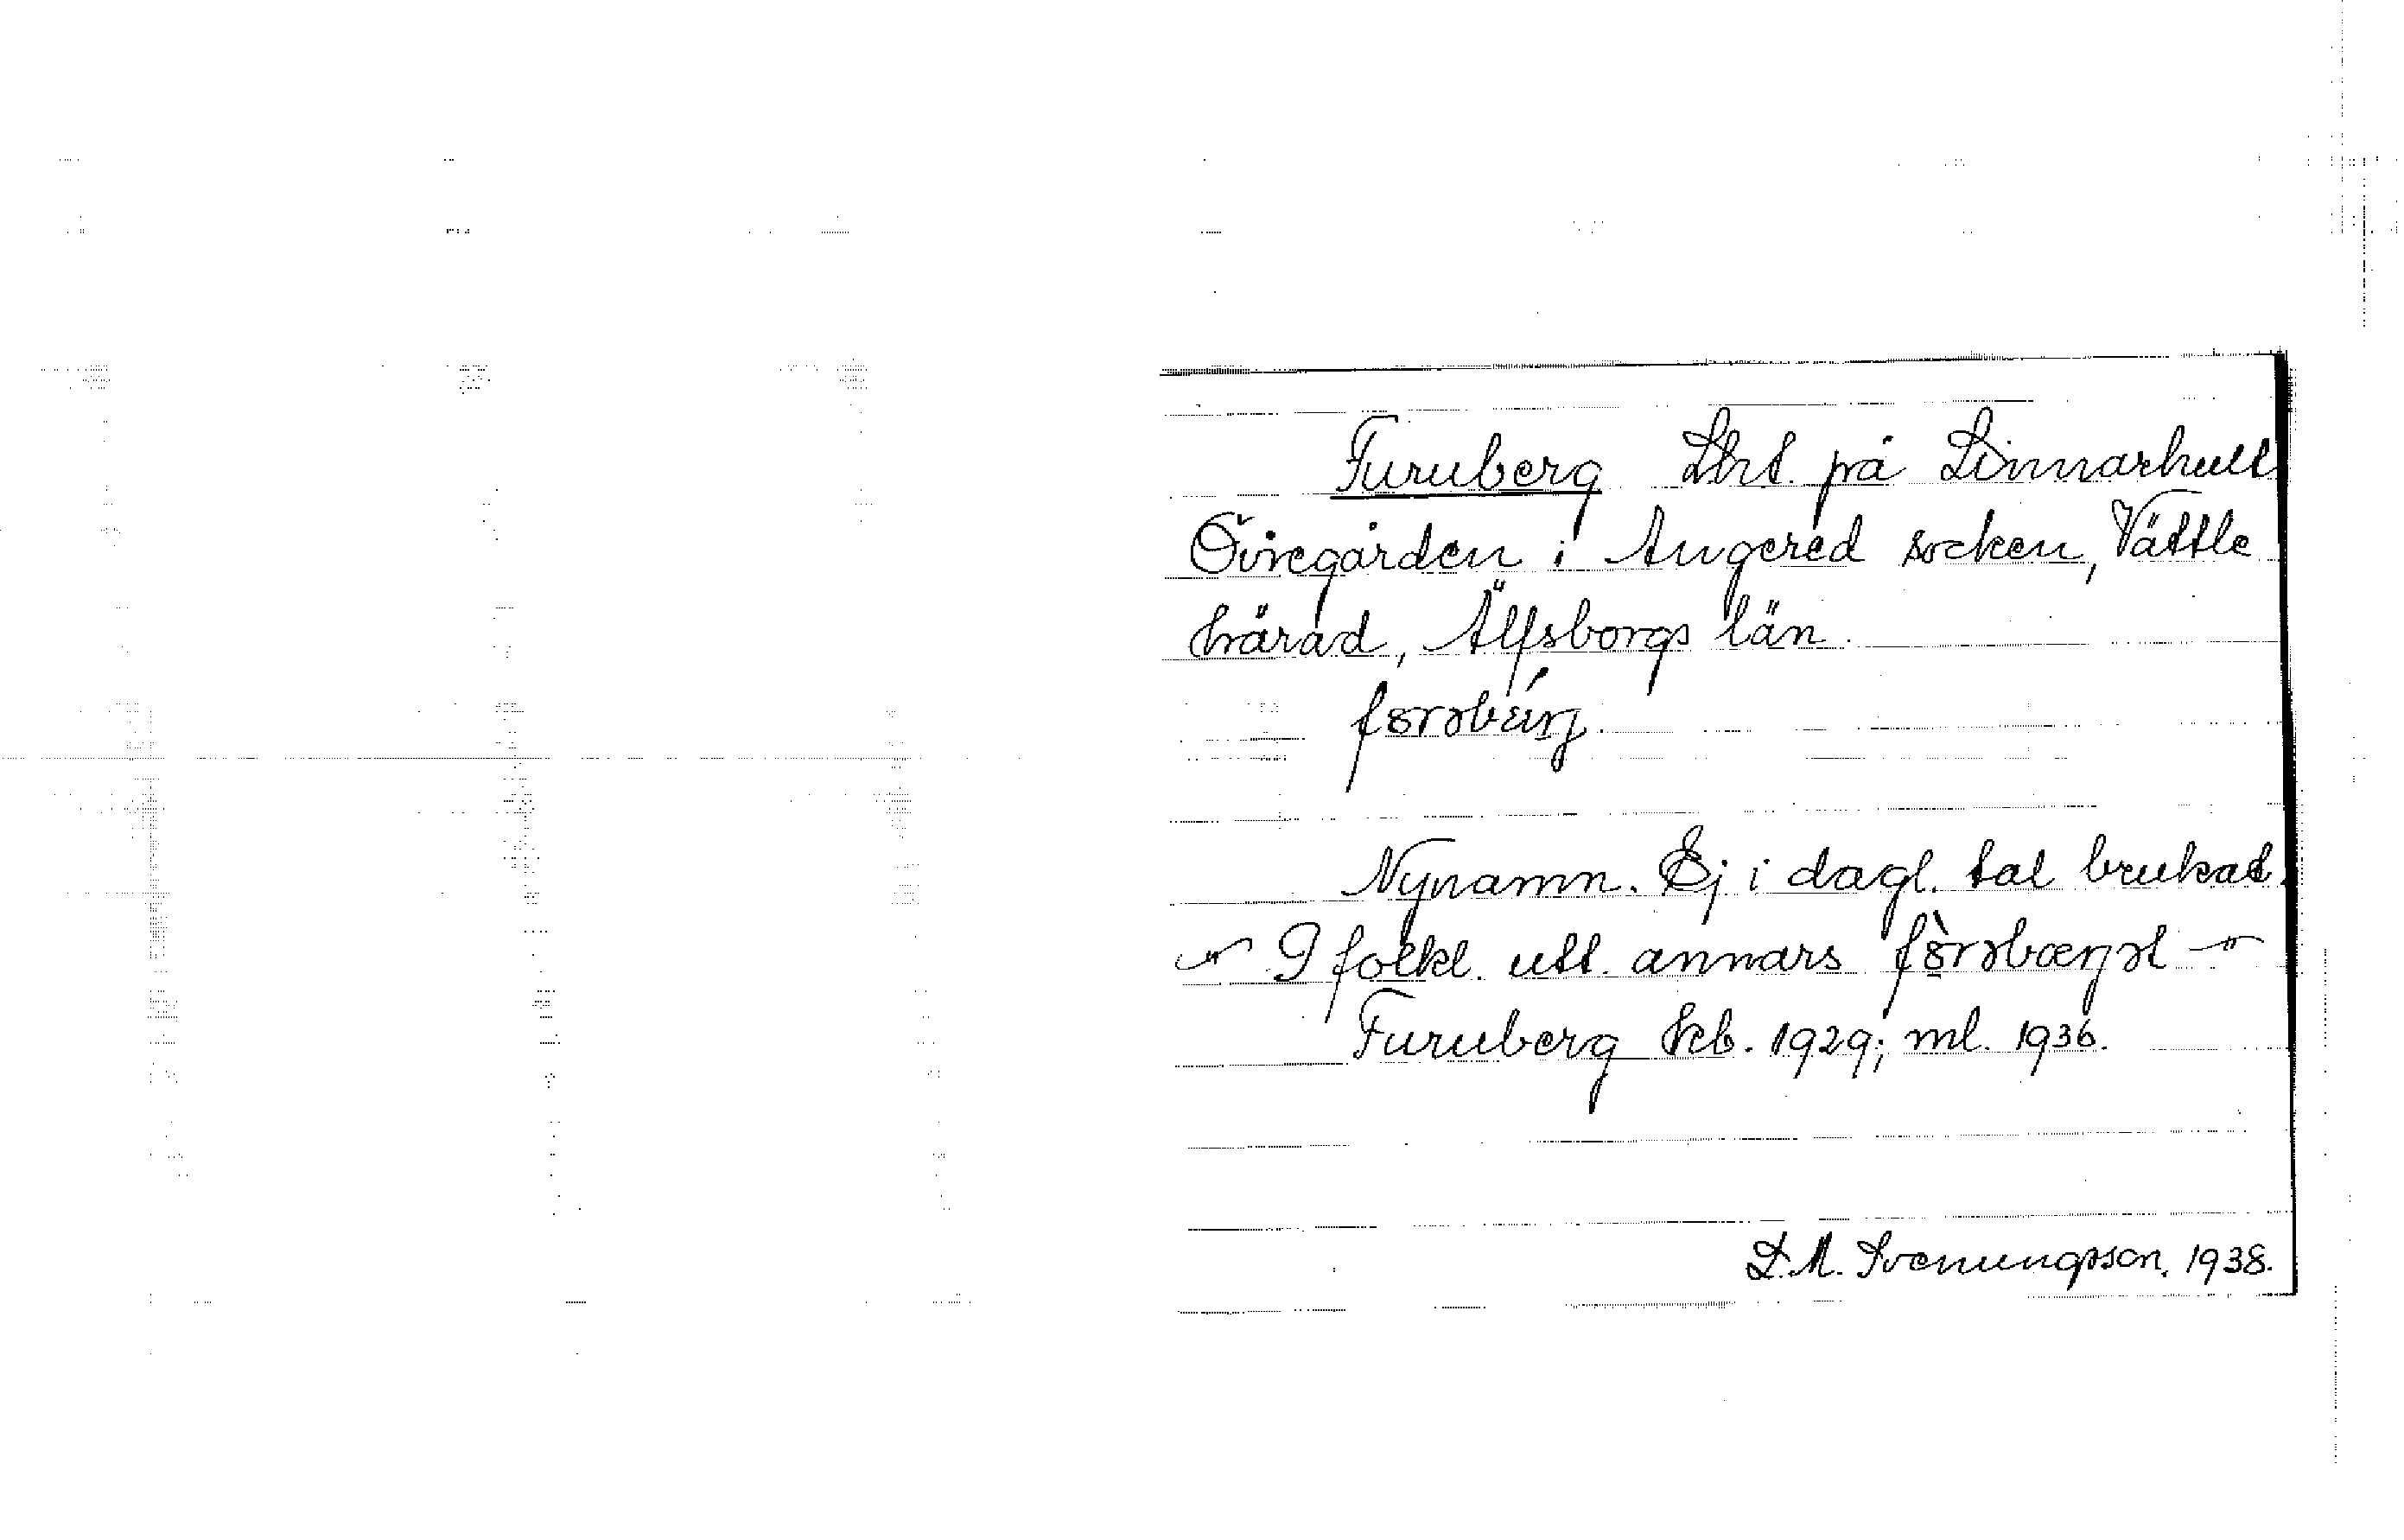 Furuberg Lht. på Linnarhult
Övregården i Angered socken, Vättle
härad, Älfsborgs län.
Nynamn. Ej i dagl. tal brukat.
I folkl. utt. annars
Furuberg Jrb. 1929; ml. 1936.
S. M. Svenungsson. 1938.